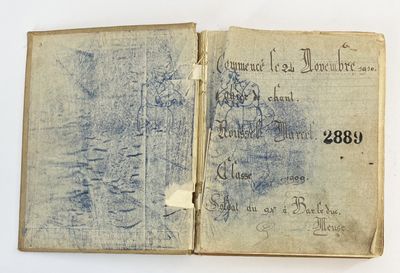 Commencé le 24 Novembre 1910.
Cahier de chant.
Roussel Marcel.
2889
Classe 1909.
Soldat au 94e à Bar le duc.
Meuse